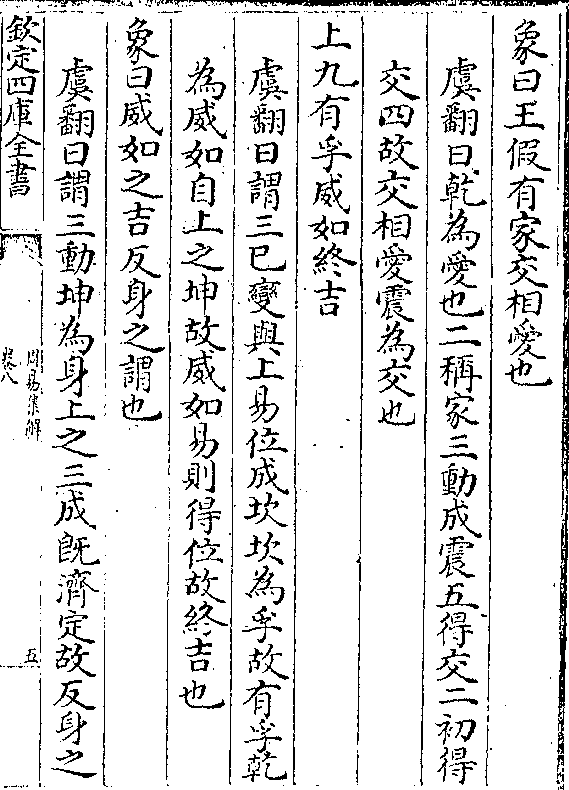 象曰王假有家交相愛也
虞翻曰乾為愛也二稱家三動成震五得交二初得
交四故交相愛震為交也
上九有孚威如終吉
虞翻曰謂三已變與上易位成坎坎為孚故有孚乾
為威如自上之坤故威如易則得位故終吉也
象曰威如之吉反身之謂也
虞翻曰謂三動坤為身上之三成既濟定故反身之
欽定四庫全書
周易集解
卷八
五